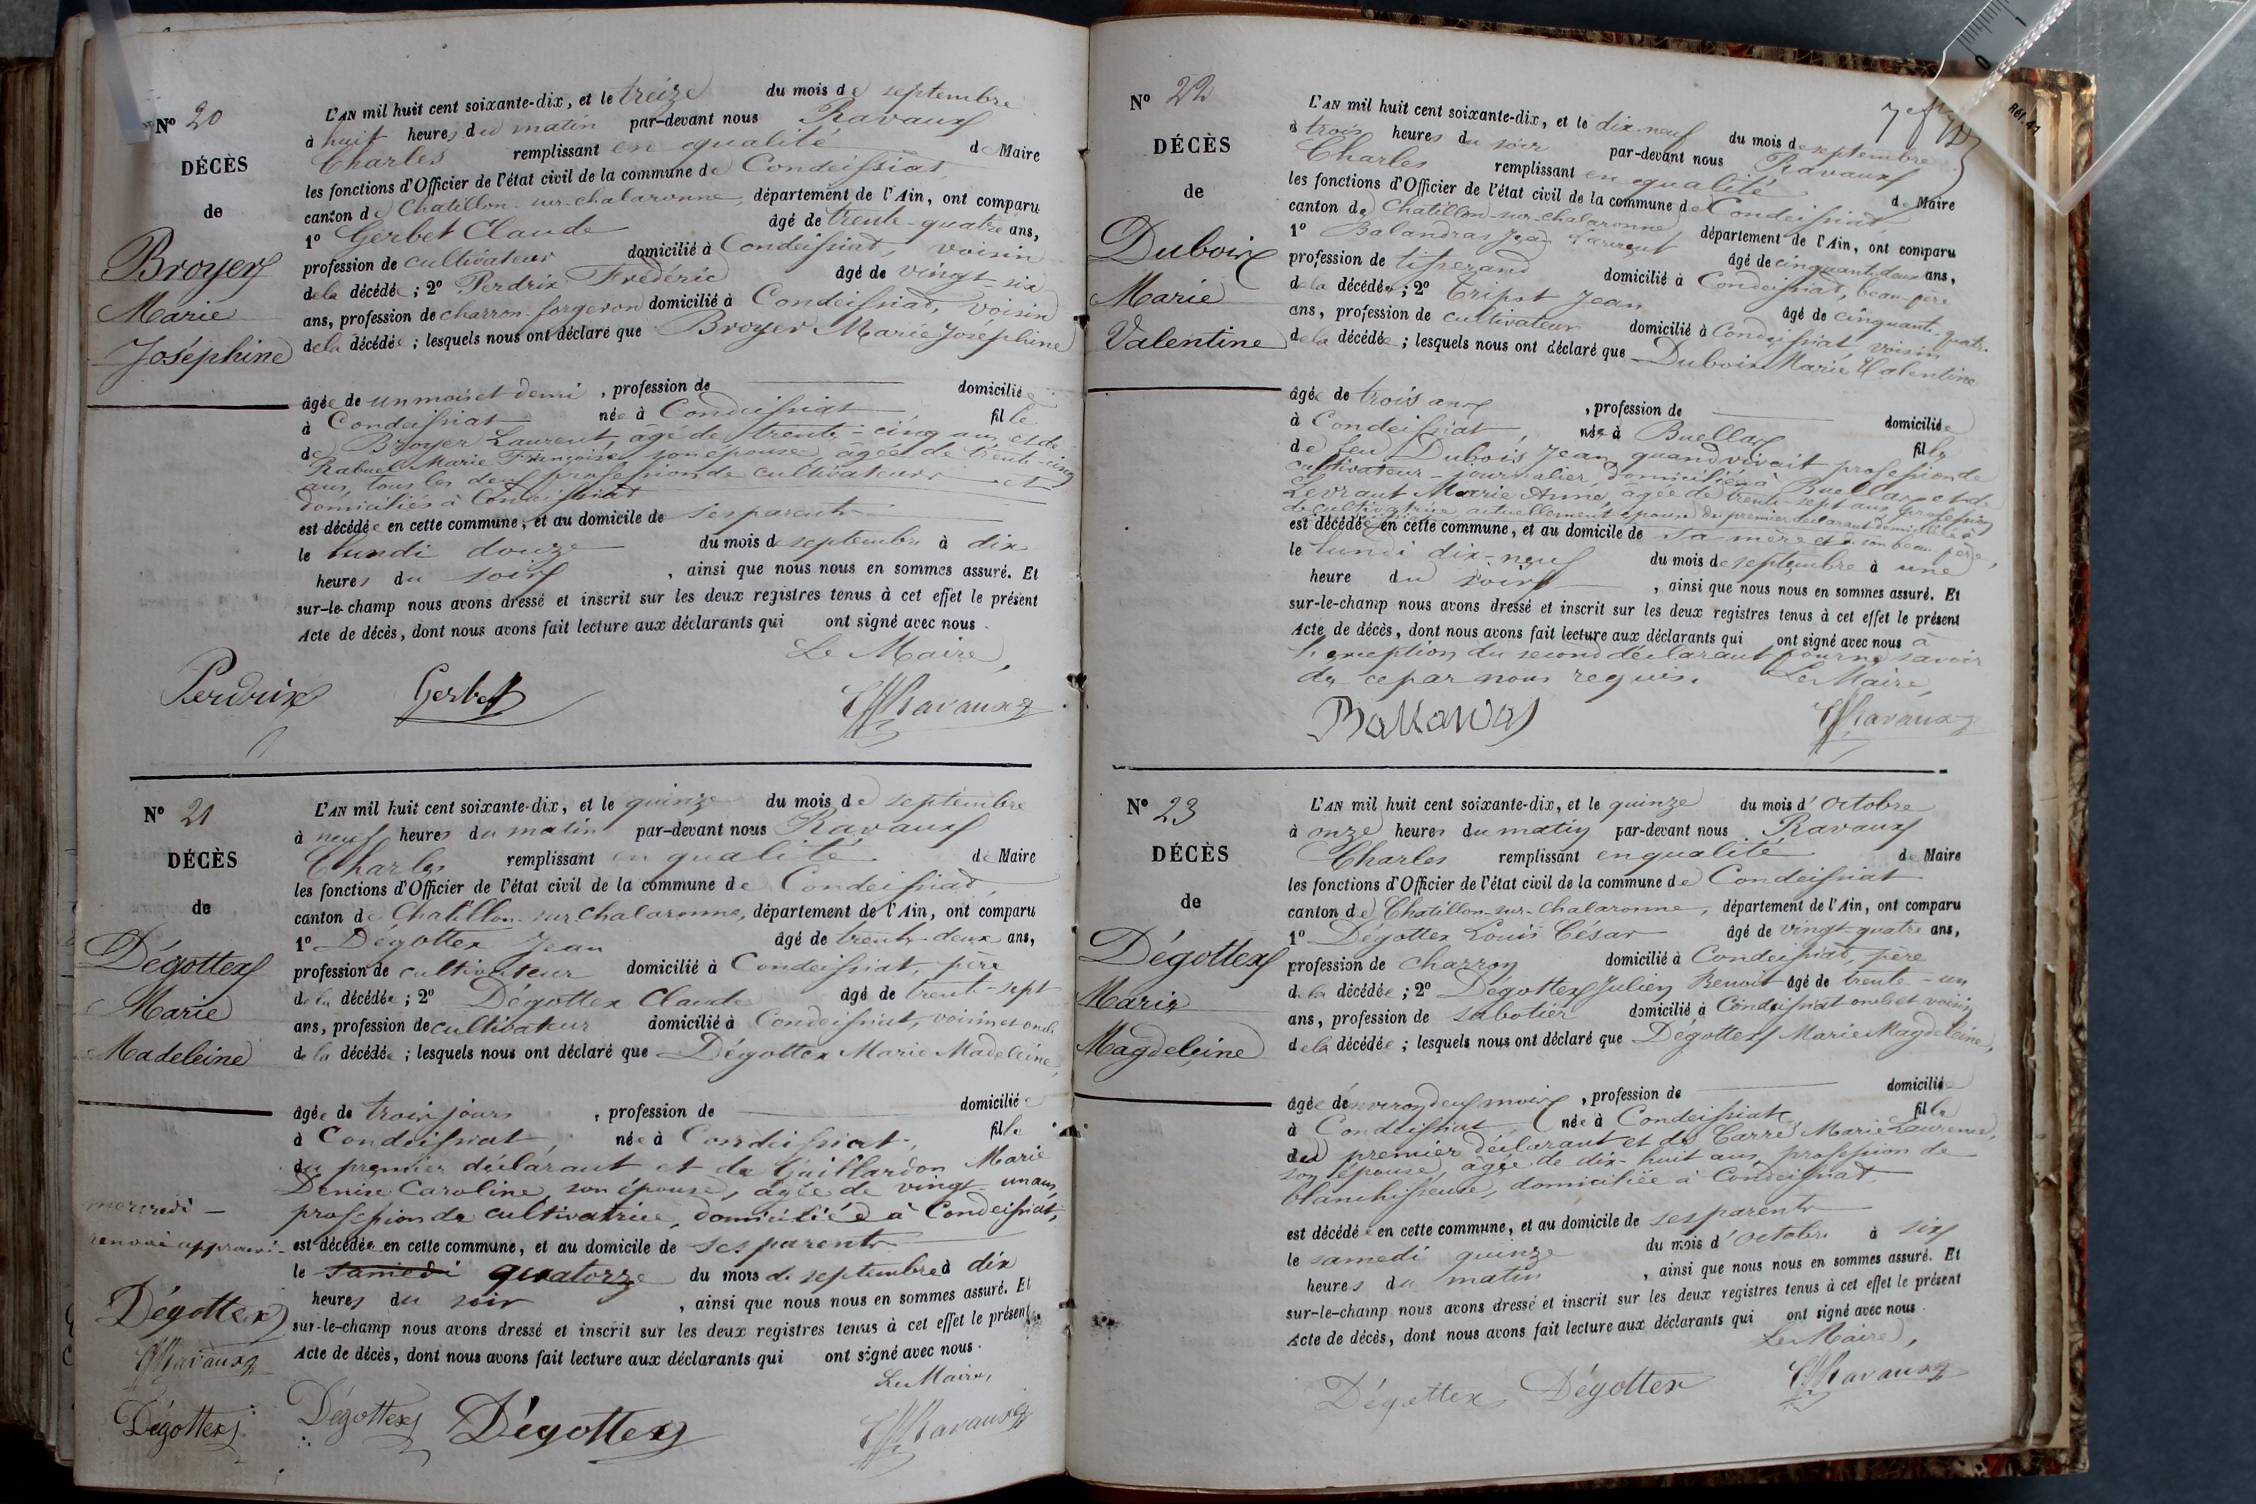 Nº 20
DÉCÈS
de
Broyer
Marie
Joséphine
L'AN mil huit cent soixante-dix, et le treize du mois de septembre
à huit heures du matin par-devant nous Ravaux
Charles remplissant en qualité de Maire
les fonctions d'Officier de l'état civil de la commune de Condeissiat,
canton de Chatillon-sur-chalaronne, département de l'Ain, ont comparu
1º Gerbet Claude âgé de trente-quatre ans,
profession de cultivateur domicilié à Condeissiat, voisin
de la décédée ; 2º Perdrix Frédéric âgé de vingt-six
ans, profession de charron-forgeron domicilié à Condeissiat, voisin
de la décédée ; lesquels nous ont déclaré que Broyer Marie Joséphine
âgée de un mois et demi, profession de domiciliée
à Condeissiat née à Condeissiat fille
de Broyer Laurent, âgé de trente-cinq ans, et de
Rabuel Marie Françoise son épouse, âgée de trente-cinq
ans, tous les deux profession de cultivateurs et
domiciliés à Condeissiat
est décédée en cette commune, et au domicile de ses parents
le lundi douze du mois de septembre à dix
heures du soir, ainsi que nous nous en sommes assuré. Et
sur-le-champ nous avons dressé et inscrit sur les deux registres tenus à cet effet le présent
Acte de décès, dont nous avons fait lecture aux déclarants qui ont signé avec nous.
Le Maire,
Perdrix Gerbet Ravaux
Nº 21
DÉCÈS
de
Dégottex
Marie
Madeleine
L'AN mil huit cent soixante-dix, et le quinze du mois de septembre
à neuf heures du matin par-devant nous Ravaux
Charles remplissant en qualité de Maire
les fonctions d'Officier de l'état civil de la commune de Condeissiat,
canton de Chatillon-sur-Chalaronne, département de l'Ain, ont comparu
1º Dégottex Jean âgé de trente-deux ans,
profession de cultivateur domicilié à Condeissiat, père
de la décédée ; 2º Dégottex Claude âgé de trente-sept
ans, profession de cultivateur domicilié à Condeissiat, voisin et oncle
de la décédée ; lesquels nous ont déclaré que Dégottex Marie Madeleine,
âgée de trois jours, profession de domiciliée
à Condeissiat, née à Condeissiat, fille
du premier déclarant et de Gaillardon Marie
Denise Caroline, son épouse, âgée de vingt-un ans,
profession de cultivatrice, domiciliée à Condeissiat,
est décédée en cette commune, et au domicile de ses parents
le samedi quatorze du mois de septembre à dix
heures du soir, ainsi que nous nous en sommes assuré. Et
sur-le-champ nous avons dressé et inscrit sur les deux registres tenus à cet effet le présent
Acte de décès, dont nous avons fait lecture aux déclarants qui ont signé avec nous.
Le Maire,
mercredi
renvoi approuvé
Dégottex
Ravaux
Dégottex
Dégottex Dégottex Ravaux
Réf. 41
Nº 22
DÉCÈS
de
Dubois
Marie
Valentine
L'AN mil huit cent soixante-dix, et le dix-neuf du mois de septembre
à trois heures du soir par-devant nous Ravaux
Charles remplissant en qualité de Maire
les fonctions d'Officier de l'état civil de la commune de Condeissiat,
canton de Chatillon-sur-chalaronne, département de l'Ain, ont comparu
1º Balandras Jean Laurent âgé de cinquante-deux ans,
profession de tisserand domicilié à Condeissiat, beau-père
de la décédée ; 2º Tripot Jean âgé de cinquante-quatre
ans, profession de cultivateur domicilié à Condeissiat, voisin
de la décédée ; lesquels nous ont déclaré que Dubois Marie Valentine
âgée de trois ans, profession de domiciliée
à Condeissiat, née à Buellas fille
de feu Dubois Jean quand vivait profession de
cultivateur-journalier, domicilié à Buellas et de
Levraut Marie Anne, âgée de trente-sept ans, profession
de cultivatrice, actuellement épouse du premier déclarant domiciliée à
est décédée en cette commune, et au domicile de sa mère et de son beau père,
le lundi dix-neuf du mois de septembre à une
heure du soir, ainsi que nous nous en sommes assuré. Et
sur-le-champ nous avons dressé et inscrit sur les deux registres tenus à cet effet le présent
Acte de décès, dont nous avons fait lecture aux déclarants qui ont signé avec nous à
l'exception du second déclarant pour ne savoir
de ce par nous requis. Le Maire,
Ravaux
Nº 23
DÉCÈS
de
Dégottex
Marie
Magdeleine
L'AN mil huit cent soixante-dix, et le quinze du mois d'octobre
à onze heures du matin par-devant nous Ravaux
Charles remplissant en qualité de Maire
les fonctions d'Officier de l'état civil de la commune de Condeissiat
canton de Chatillon-sur-Chalaronne, département de l'Ain, ont comparu
1º Dégottex Louis César âgé de vingt-quatre ans,
profession de charron domicilié à Condeissiat, père
de la décédée ; 2º Dégottex Julien Benoit âgé de trente-un
ans, profession de sabotier domicilié à Condeissiat oncle et voisin
de la décédée ; lesquels nous ont déclaré que Dégottex Marie Magdeleine,
âgée d'environ deux mois, profession de domiciliée
à Condeissiat, née à Condeissiat fille
du premier déclarant et de Carré Marie Laurence,
son épouse, âgée de dix-huit ans, profession de
blanchisseuse, domiciliée à Condeissiat
est décédée en cette commune, et au domicile de ses parents
le samedi quinze du mois d'octobre à six
heures du matin, ainsi que nous nous en sommes assuré. Et
sur-le-champ nous avons dressé et inscrit sur les deux registres tenus à cet effet le présent
Acte de décès, dont nous avons fait lecture aux déclarants qui ont signé avec nous.
Le Maire,
Dégottex Dégottex Ravaux